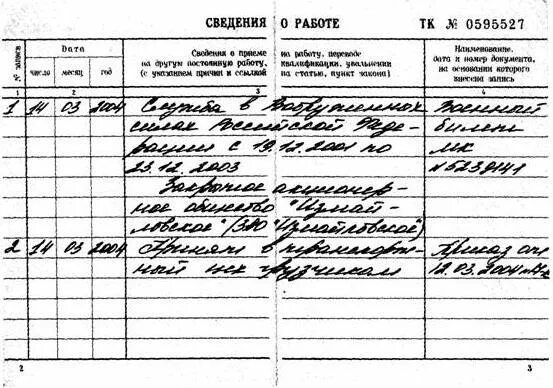 СВЕДЕНИЯ О РАБОТЕ ТК № 0595527
№ записи
Дата
число месяц год
Сведения о приеме на работу, переводе
на другую постоянную работу, квалификации, увольнении
(с указанием причин и ссылкой на статью, пункт закона)
Наименование,
дата и номер документа,
на основании которого
внесена запись
1 2 3 4
1 14 03 2004 Служба в Вооруженных Военный
силах Российской Феде- билет
рации с 19.12.2001 по МК
23.12.2003 №5239141
Закрытое акционер-
ное общество "Измай-
ловское" (ЗАО "Измайловское")
2 14 03 2004 Принят в транспорт- Приказ от
ный цех грузчиком 12.03.2004
2 3